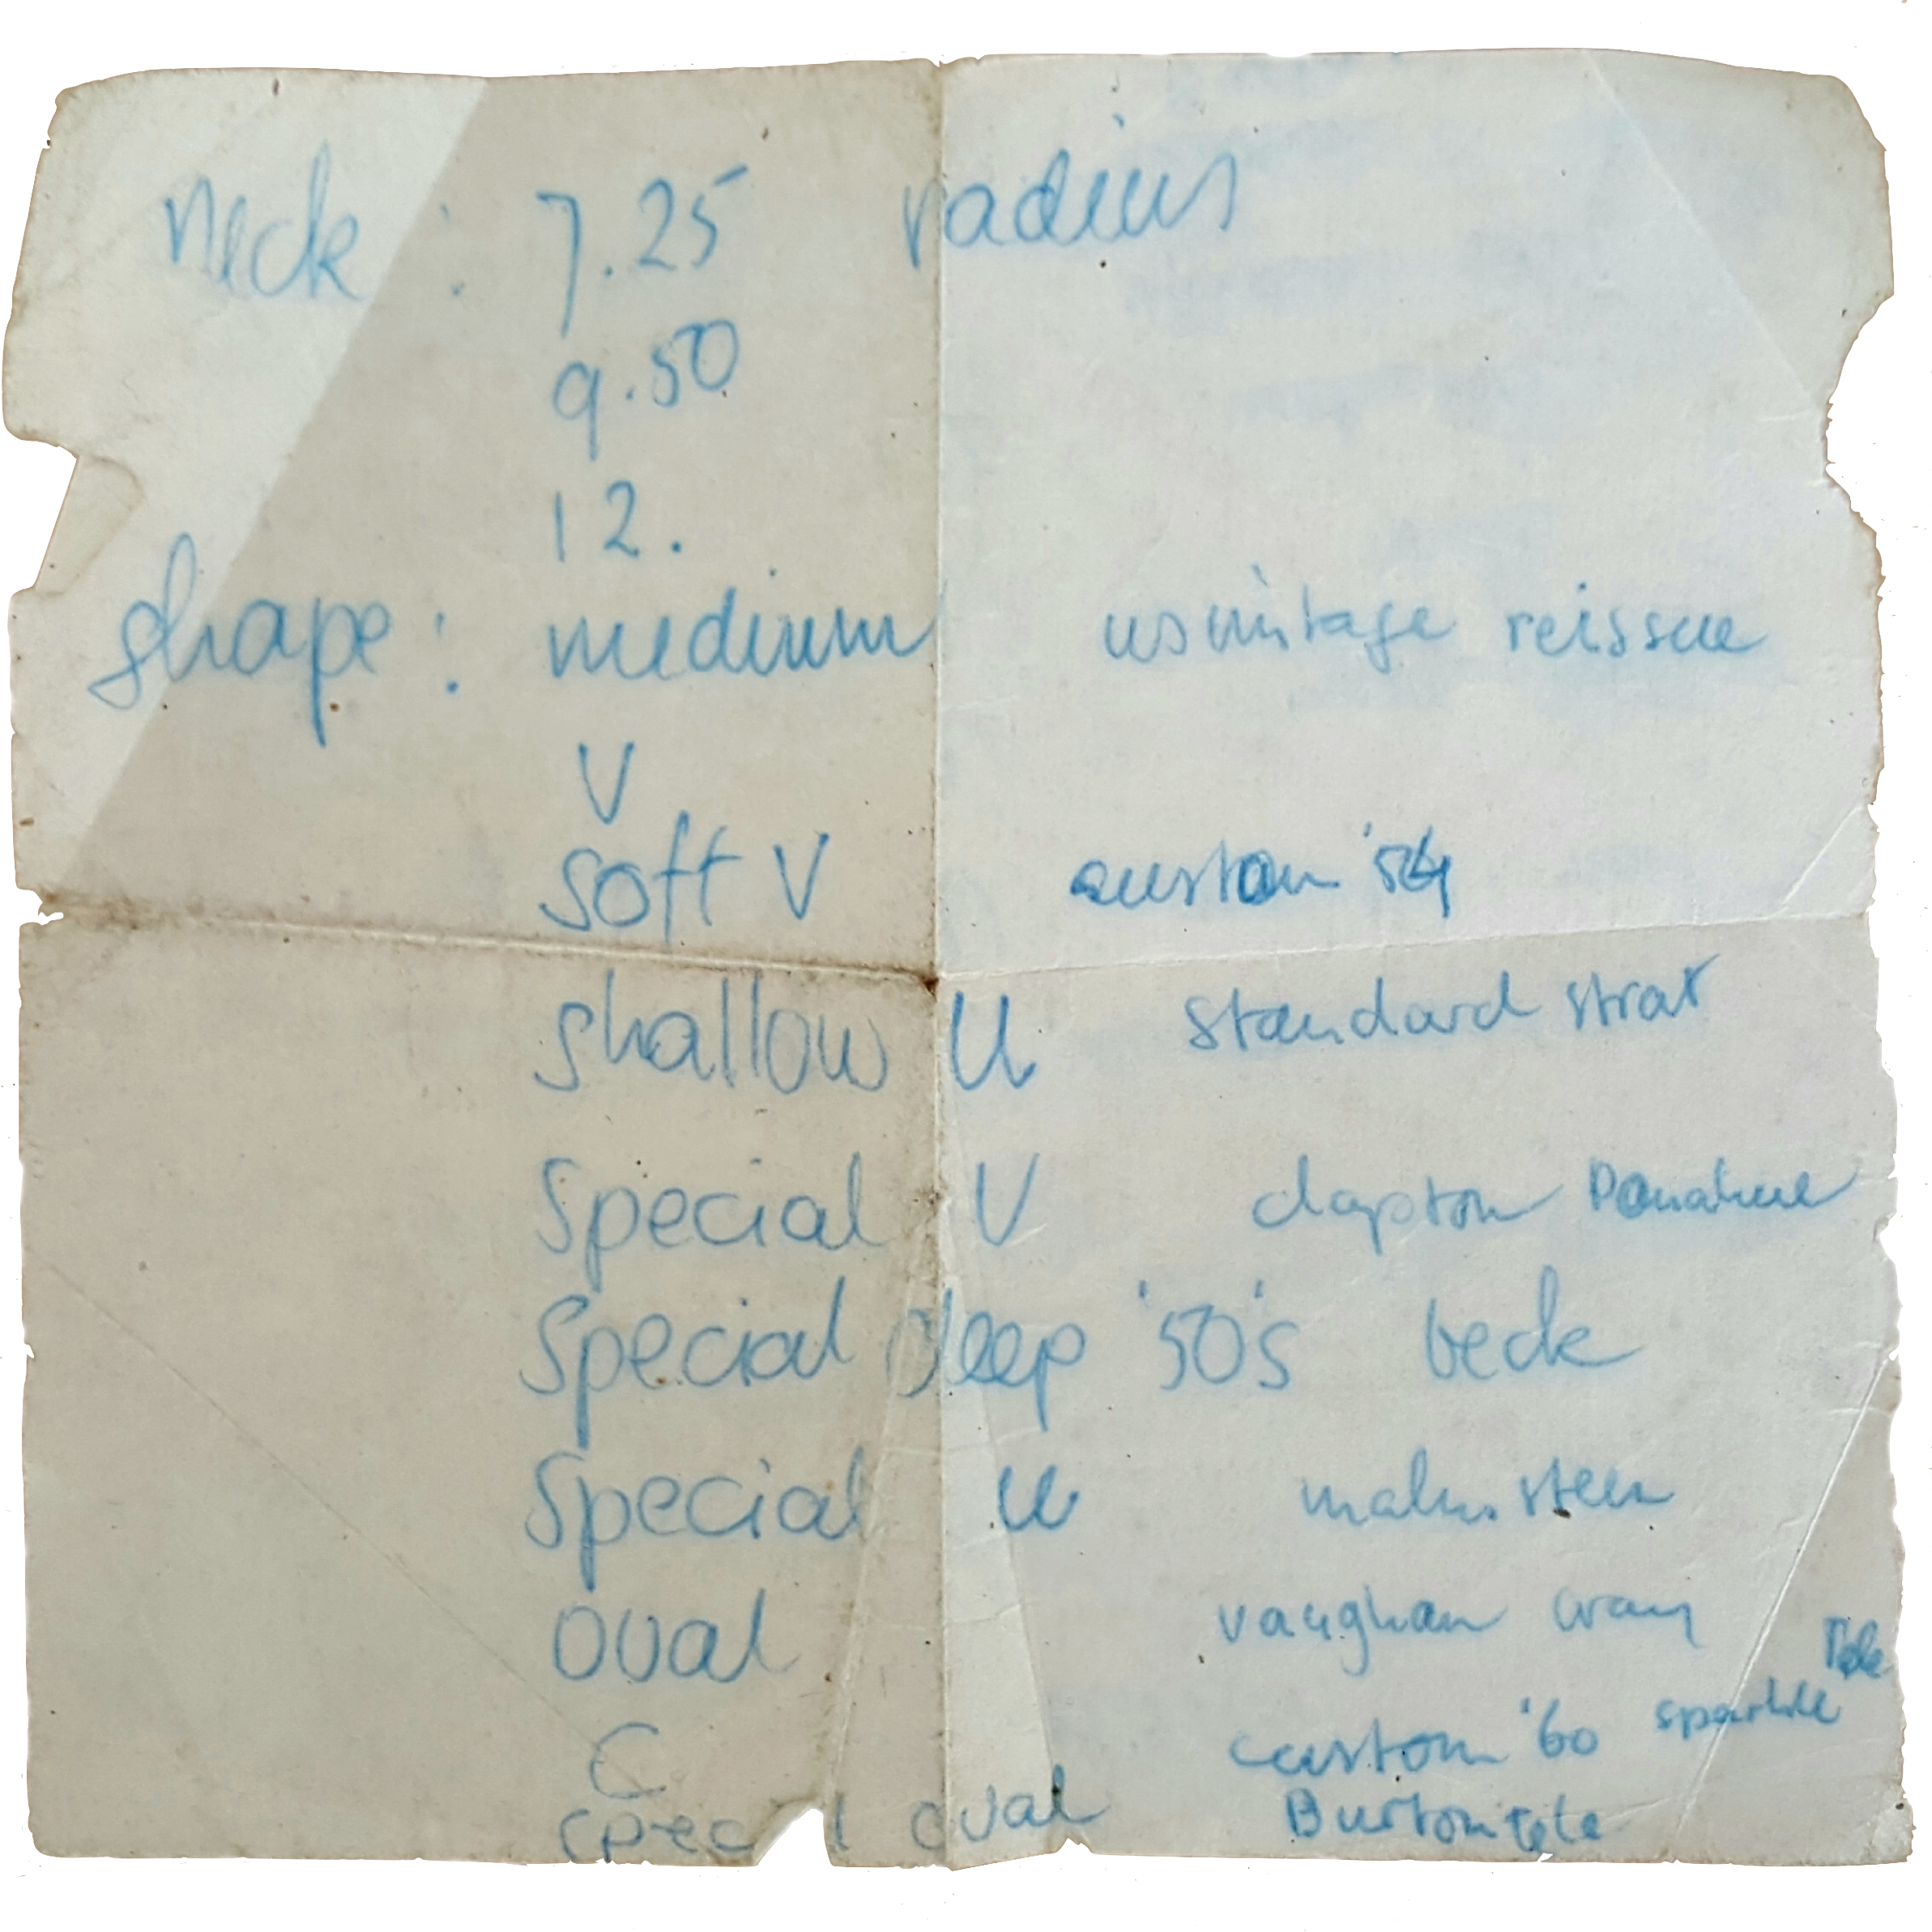 neck : 7.25 radius
9.50
12.
shape : medium usvintage reissue
V
soft V custom '54
shallow U standard strat
special V clapton Donahue
special deep '50's beck
special U malmsteen
oval vaughan cray
Tele
C custom '60 sparkle
spec l oval Burton tele